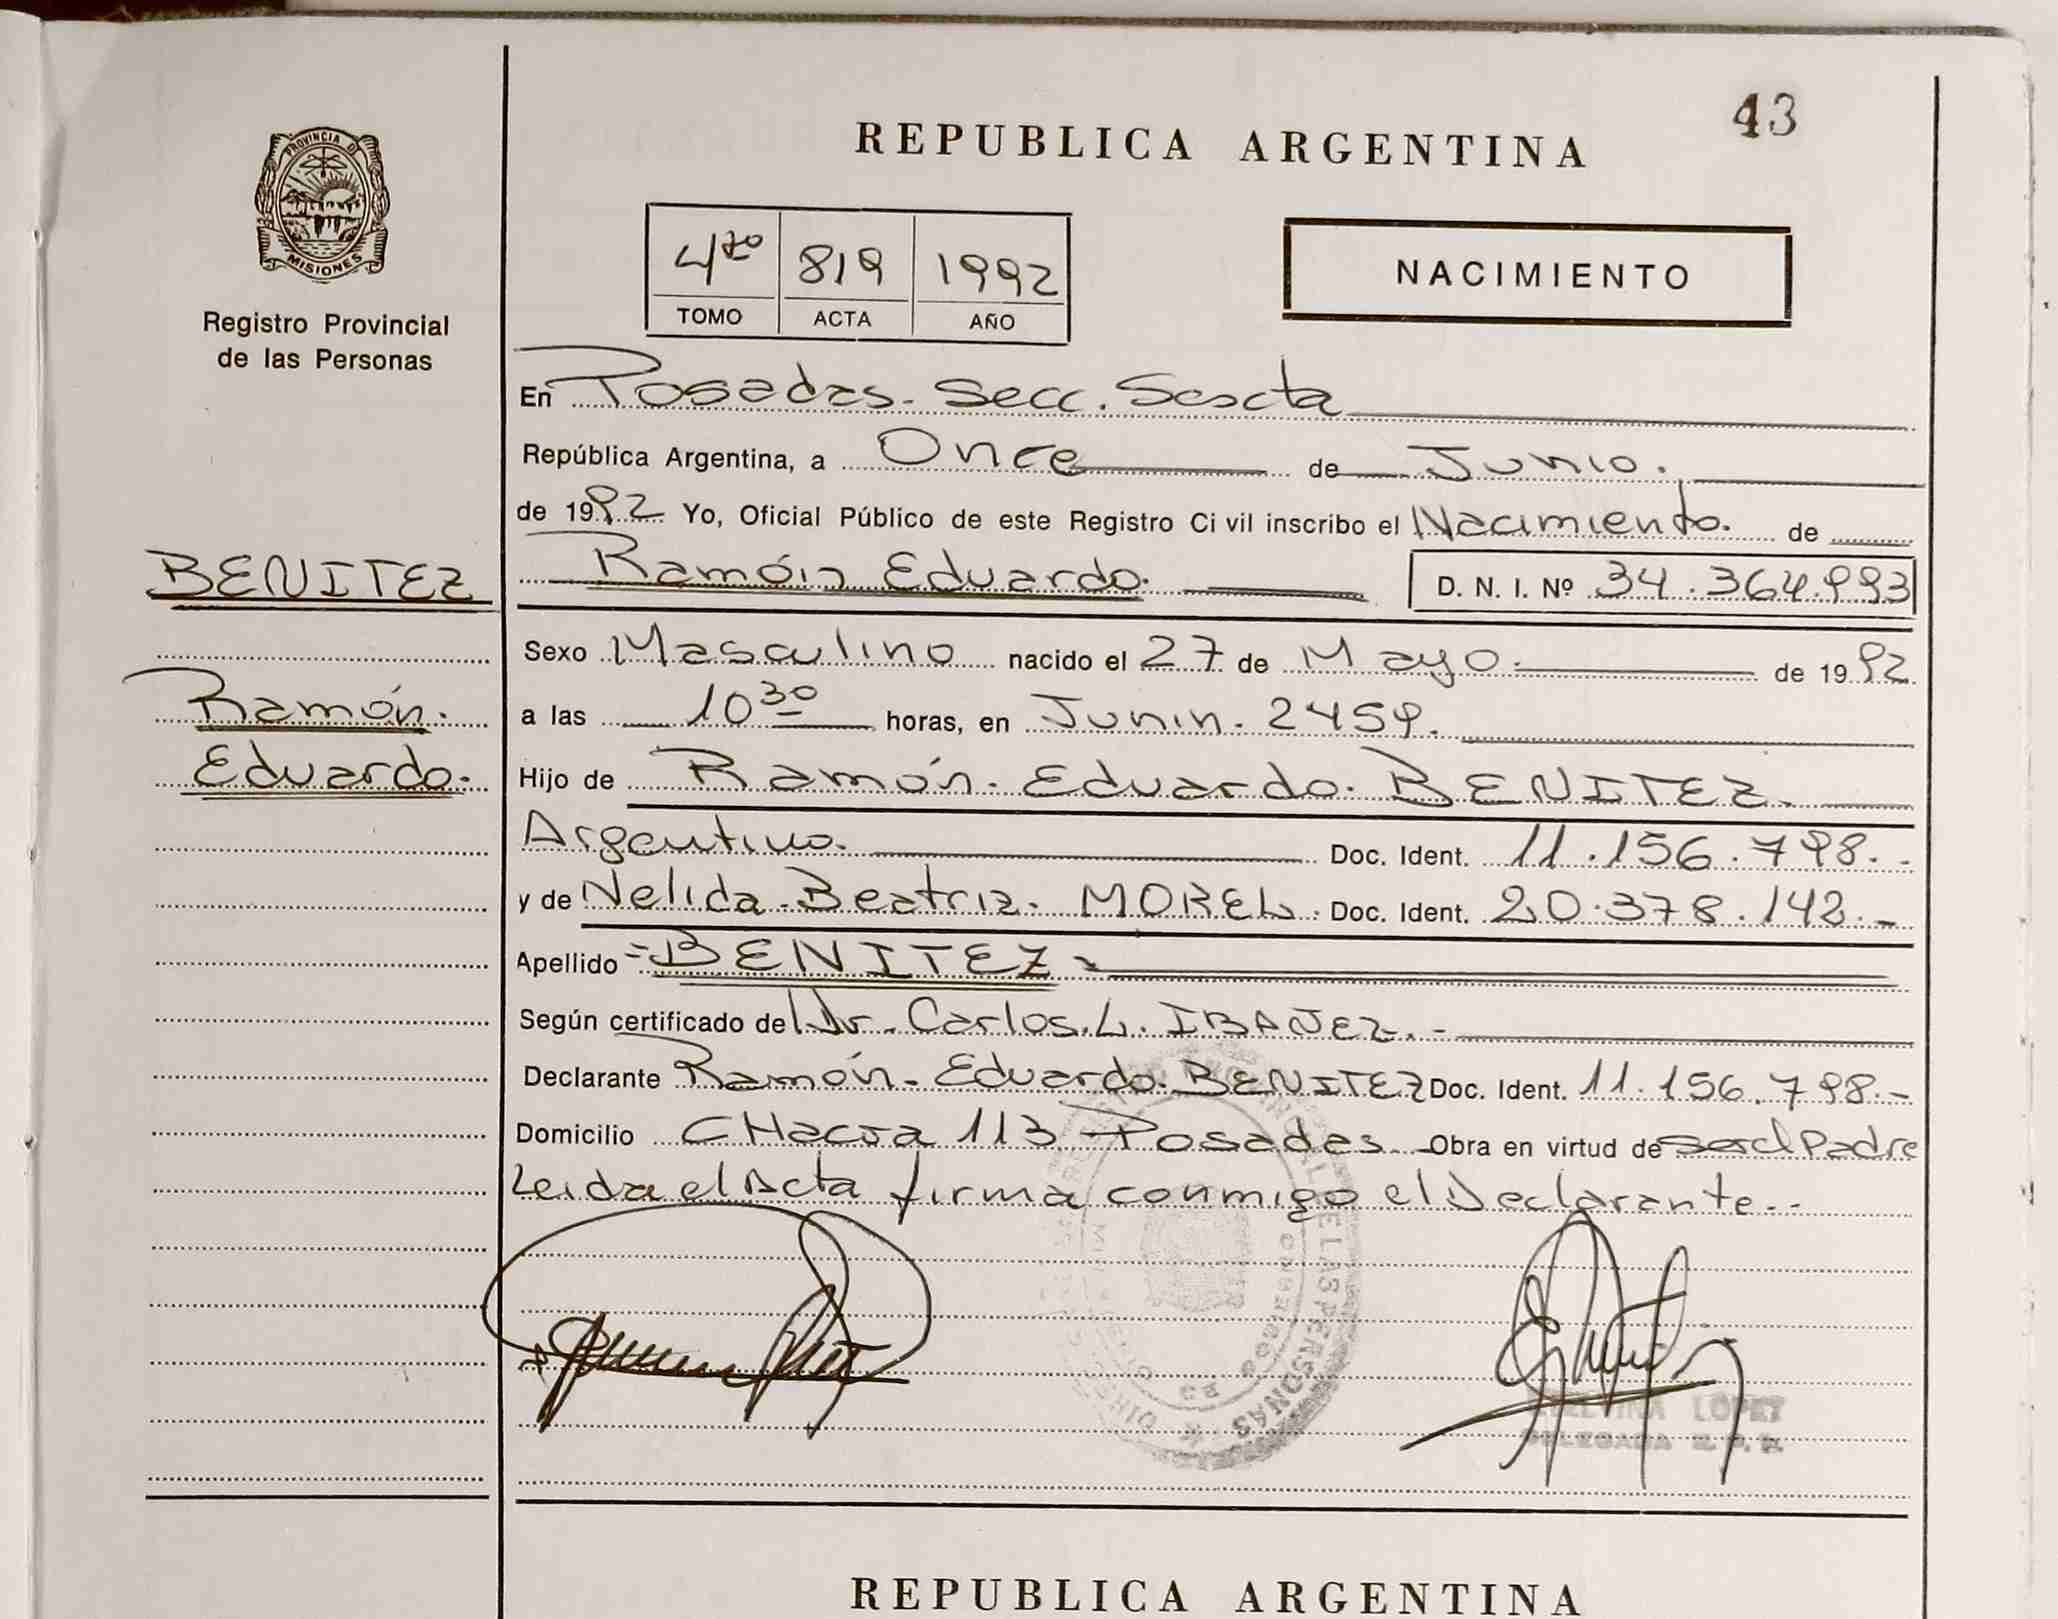 43
REPUBLICA ARGENTINA
PROVINCIA DE
MISIONES
Registro Provincial
de las Personas
4to 819 1992
TOMO ACTA AÑO
NACIMIENTO
En Posadas. Secc. Sexta
República Argentina, a Once de Junio.
de 1992 Yo, Oficial Público de este Registro Ci vil inscribo el Nacimiento. de
BENITEZ
Ramón Eduardo. D. N. I. Nº 34.364.993
Sexo Masculino nacido el 27 de Mayo. de 1992
Ramón.
a las 10 30 horas, en Junin. 2459.
Eduardo.
Hijo de Ramón. Eduardo. BENITEZ.
Argentino. Doc. Ident. 11.156.798.-
y de Nelida. Beatriz. MOREL. Doc. Ident. 20.378.142.-
Apellido =BENITEZ=
Según certificado del Dr. Carlos. L. IBAÑEZ.-
Declarante Ramón. Eduardo. BENITEZ Doc. Ident. 11.156.798.-
Domicilio CHacra 113 Posadas. Obra en virtud de ser el Padre
Leida el Acta firma conmigo el Declarante.-
DE LAS PERSONAS
LOPEZ
DELEGADA R. P. P.
REPUBLICA ARGENTINA